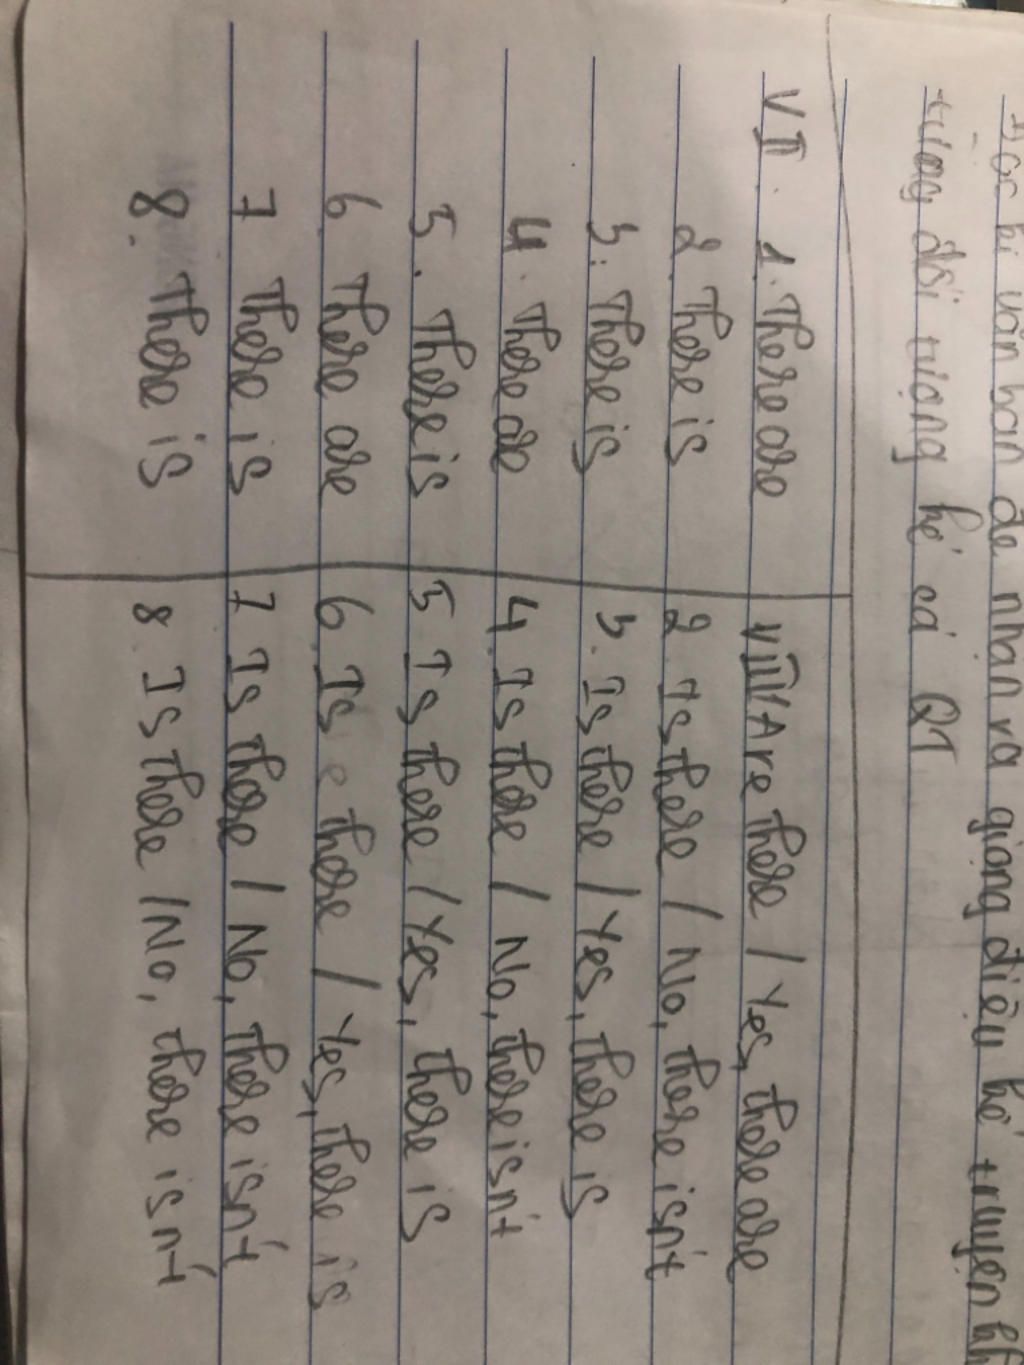 vấn bản để nhận ra giọng điệu kể truyện
từng đối tượng kể cả QT
VII. 1. There are
2. There is
3. There is
4. There are
5. There is
6 There are
7 There is
8. There is
VIII 1 Are there / Yes, there are
2. Is there / No, there isn't
3. Is there / Yes, there is
4. Is there / No, there isn't
5 Is there / Yes, there is
6. Is there / Yes, there is
7 Is there / No, there isn't
8. Is there / No, there isn't